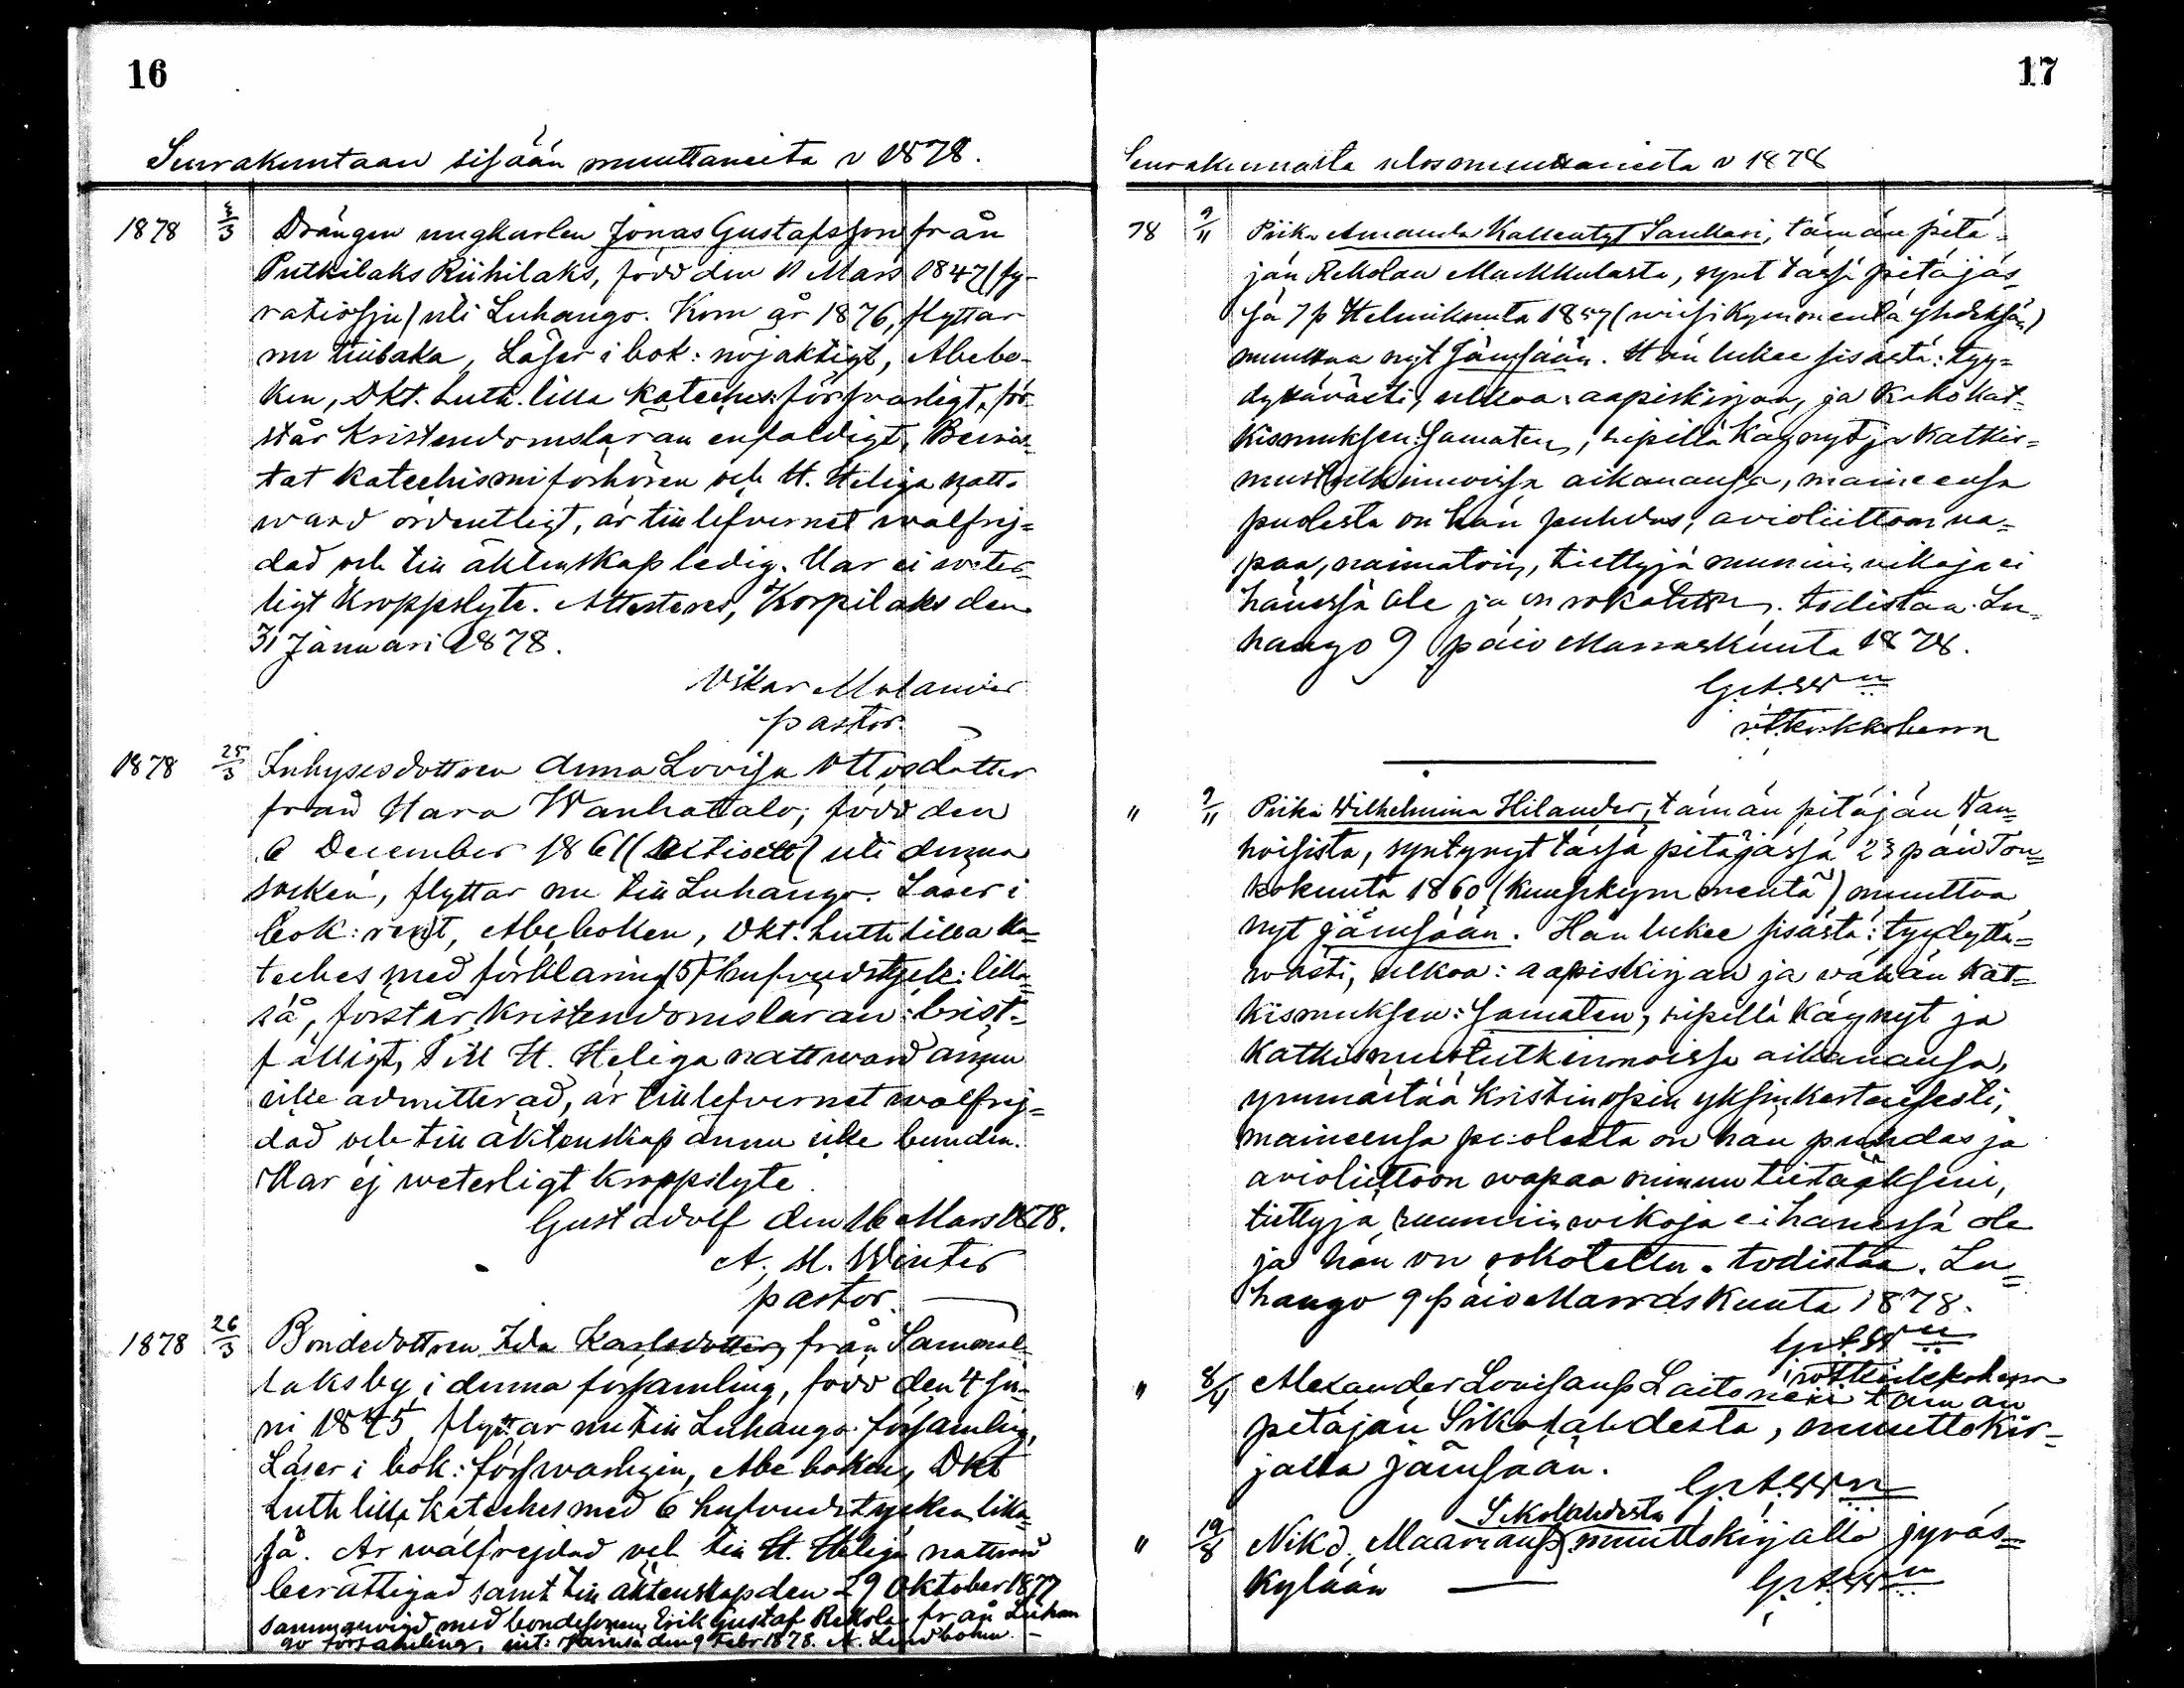 16
Seurakuntaan sisään muuttaneita v 1878.
1878 3/3 Drängen ungkarlen Jonas Gustafsson från
Putkilaks Riihilaks, född den 11 Mars 1847 (fy-
ratiosju) uti Luhango. Kom år 1876, flyttar
nu tillbaka, Läser i bok: nöjaktigt, Abebo-
ken, Dkt. Luth. lilla kateches: försvarligt, för
står Kristendomsläran enfaldigt, Bewis-
tat katechismiförhören och H. Heliga natt-
ward ordentligt, är till lefvernet wälfrej=
dad och till äktenskap ledig. Har ei veter-
ligt kroppslyte. Attesteres, Korpilaks den
31 Januari 1878.
Oskar Molander
pastor.
1878 25/3 Inhysesdottren Anna Lovisa Ottosdotter
från Hara Wanhatalo; född den
6 December 1861 (sextioett) uti denna
socken, flyttar nu till Luhango. Läser i
bok: rent, Abeboken, Dkt. Luth lilla ka=
teches med förklaring (5) Hufvudstyck: lika=
så, förstår Kristendomsläran: brist=
fälligt, Till H. Heliga nattward ännu
icke admitterad, är till lefvernet wälfrej=
dad och till äktenskap ännu icke bunden.
Har ej weterligt kroppslyte.
Gust Adolf den 16 Mars 1878.
A. H. Winter
pastor.
1878 26/3 Bondedottren Ida Karlsdotter från
i denna församling, född den 4 Ju-
ni 1845, flyttar nu till Luhango församling,
Läser i bok: försvarligen, Abeboken, Dkt
Luth lilla kateches med 6 hufvudstycken lika=
så. Är wälfrejdad och till H. Heliga nattward
berättigad samt till äktenskap den 29 Oktober 1877
sammanvigd med bondesonen Erik Gustaf Rekola från Luhan
go församling, int: Jämsä den 9 Febr 1878. A. Lindbohm.
17
Seurakunnasta ulosmuuttaneista v 1878
78 9/11 Piika Amanda Kallentyt Saukari, tämän pitä=
jän Rekolan Markkulasta, synt tässä pitäjäs
sä 7 p Helmikuuta 1859 (wiisikymmentä yhdeksän)
muuttaa nyt Jämsään. Hän lukee sisästä: tyy=
dyttävästi, ulkoa: aapiskirjan, ja koko kat-
kismuksen: Samaten, ripillä käynyt ja katkis=
mustutkinnoissa aikanansa, maineensa
puolesta on hän puhdas, avioliittoon va=
paa, naimatoin, tiettyjä ruumiin vikoja ei
hänessä ole ja on rokotettu. todistaa. Lu-
hango 9 päiv Marraskuuta 1878.
v.t. kirkkoherra
" 9/11 Piika Wilhelmina Hilander, tämän pitäjän Van=
hoisista, syntynyt tässä pitäjässä 23 päiv Tou=
kokuuta 1860 (kuusikymmentä) muuttaa
nyt Jämsään. Hän lukee sisästä: tyydyttä=
wästi, ulkoa: aapiskirjan ja vähän kat=
kismuksen: Samaten, ripillä käynyt ja
katkismustutkinnoissa aikanansa,
ymmärtää kristinopin yksinkertaisesti,
maineensa puolesta on hän puhdas ja
avioliittoon wapaa minun tietääkseni,
tiettyjä ruumiin wikoja ei hänessä ole
ja hän on rokotettu. todistaa. Lu=
hango 9 päiv Marraskuuta 1878.
v.t. kirkkoherra
" 8/4 Alexander Lovisanp Laitonen tämän
pitäjän Sikolahdesta, muuttokir=
jalla Jämsään.
Sikolahdesta
" 19/8 Nikd. Maarianp muuttokirjalla Jyväs=
kylään